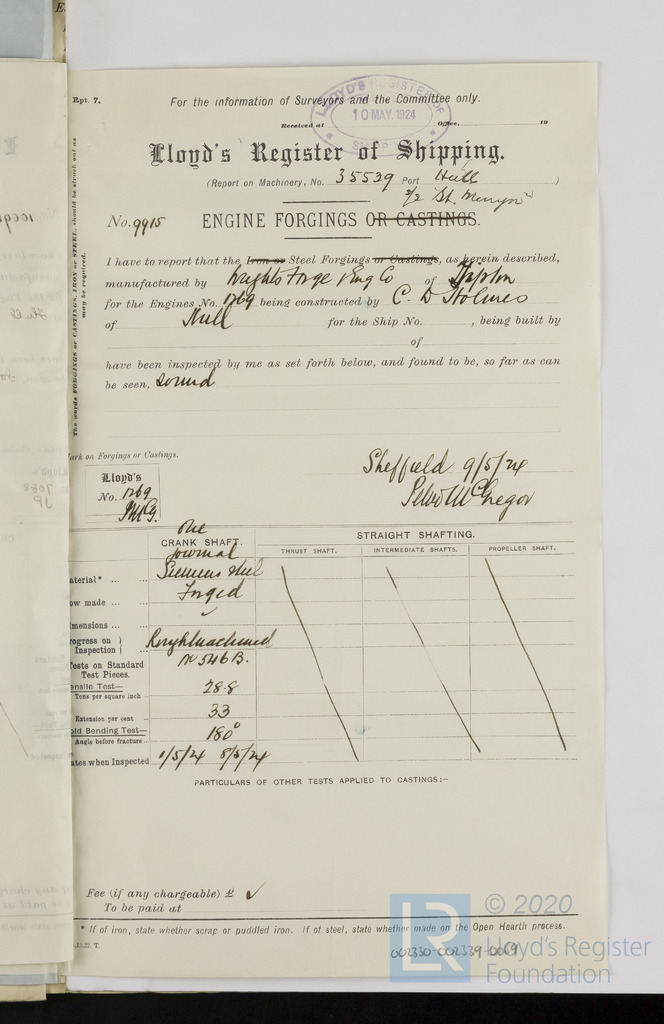 Rpt. 7.
For the information of Surveyors and the Committee only.
LLOYD'S REGISTER OF
10 MAY. 1924
Received at Office, 19
Lloyd's Register of Shipping.
(Report on Machinery, No. 35529 Port Hull)
"St. Merryn"
No. 9915 ENGINE FORGINGS OR CASTINGS.
I have to report that the Iron or Steel Forgings or Castings, as herein described,
manufactured by Wrights Forge & Eng Co of Tipton
for the Engines No. 1269 being constructed by C. D Holmes
of Hull for the Ship No. , being built by
of
have been inspected by me as set forth below, and found to be, so far as can
be seen, sound
The words FORGINGS or CASTINGS, IRON or STEEL, should be struck out as
may be required.
ark on Forgings or Castings.
Lloyd's
No. 1269
Sheffield 9/5/24
McGregor
One
CRANK SHAFT. STRAIGHT SHAFTING.
Journal THRUST SHAFT. INTERMEDIATE SHAFTS. PROPELLER SHAFT.
aterial* ... ... Siemens Steel
ow made ... ... Forged
imensions ... ... ✓
rogress on } Inspection } ... Roughmachined
ests on Standard Test Pieces. No 546B.
ensile Test—
Tens per square inch 28.8
Extension per cent 33
old Bending Test—
Angle before fracture 180°
ates when Inspected 1/5/24 8/5/24
PARTICULARS OF OTHER TESTS APPLIED TO CASTINGS:—
Fee (if any chargeable) £ ✓
To be paid at
* If of iron, state whether scrap or puddled iron. If of steel, state whether made on the Open Hearth process.
LR
© 2020
Lloyd's Register
Foundation
002330-002339-0069